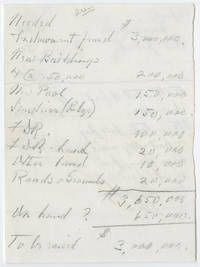 Needed $
Endowment fund 3,000,000.
New Buildings
4 @ 50,000 200,000
New Pool 150,000
150,000.
F.D.R. 100,000
F.D.R. 20,000
Other 10,000
Roads & Grounds 20,000
$ 3,650,000
On hand ? 650,000.
To be raised $ 3,000,000.